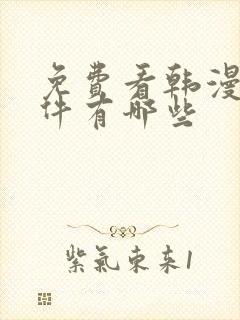 免費看韩漫
件有哪些
紫氣東来1